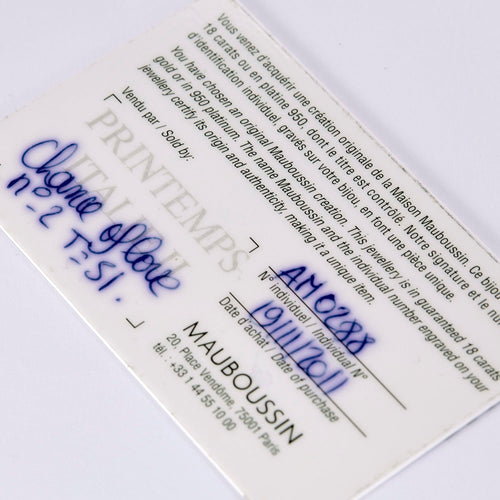 Vous venez d'acquérir une création originale de la Maison Mauboussin. Ce bijou
18 carats ou en platine 950, dont le titre est contrôlé. Notre signature et le nu
d'identification individuel gravés sur votre bijou en font une pièce unique.
You have chosen an original Mauboussin creation. This jewellery is in guaranteed 18 carats
gold or in 950 platinum. The name Mauboussin and the individual number engraved on your
jewellery certify its origin and authenticity, making it a unique item.
Vendu par / Sold by:
PRINTEMPS
Chance of love
n°2 T=51.
AM0288
N° individuel / Individual N°
19/11/2011
Date d'achat / Date of purchase
MAUBOUSSIN
20, Place Vendôme, 75001 Paris
tél. : +33 1 44 55 10 00